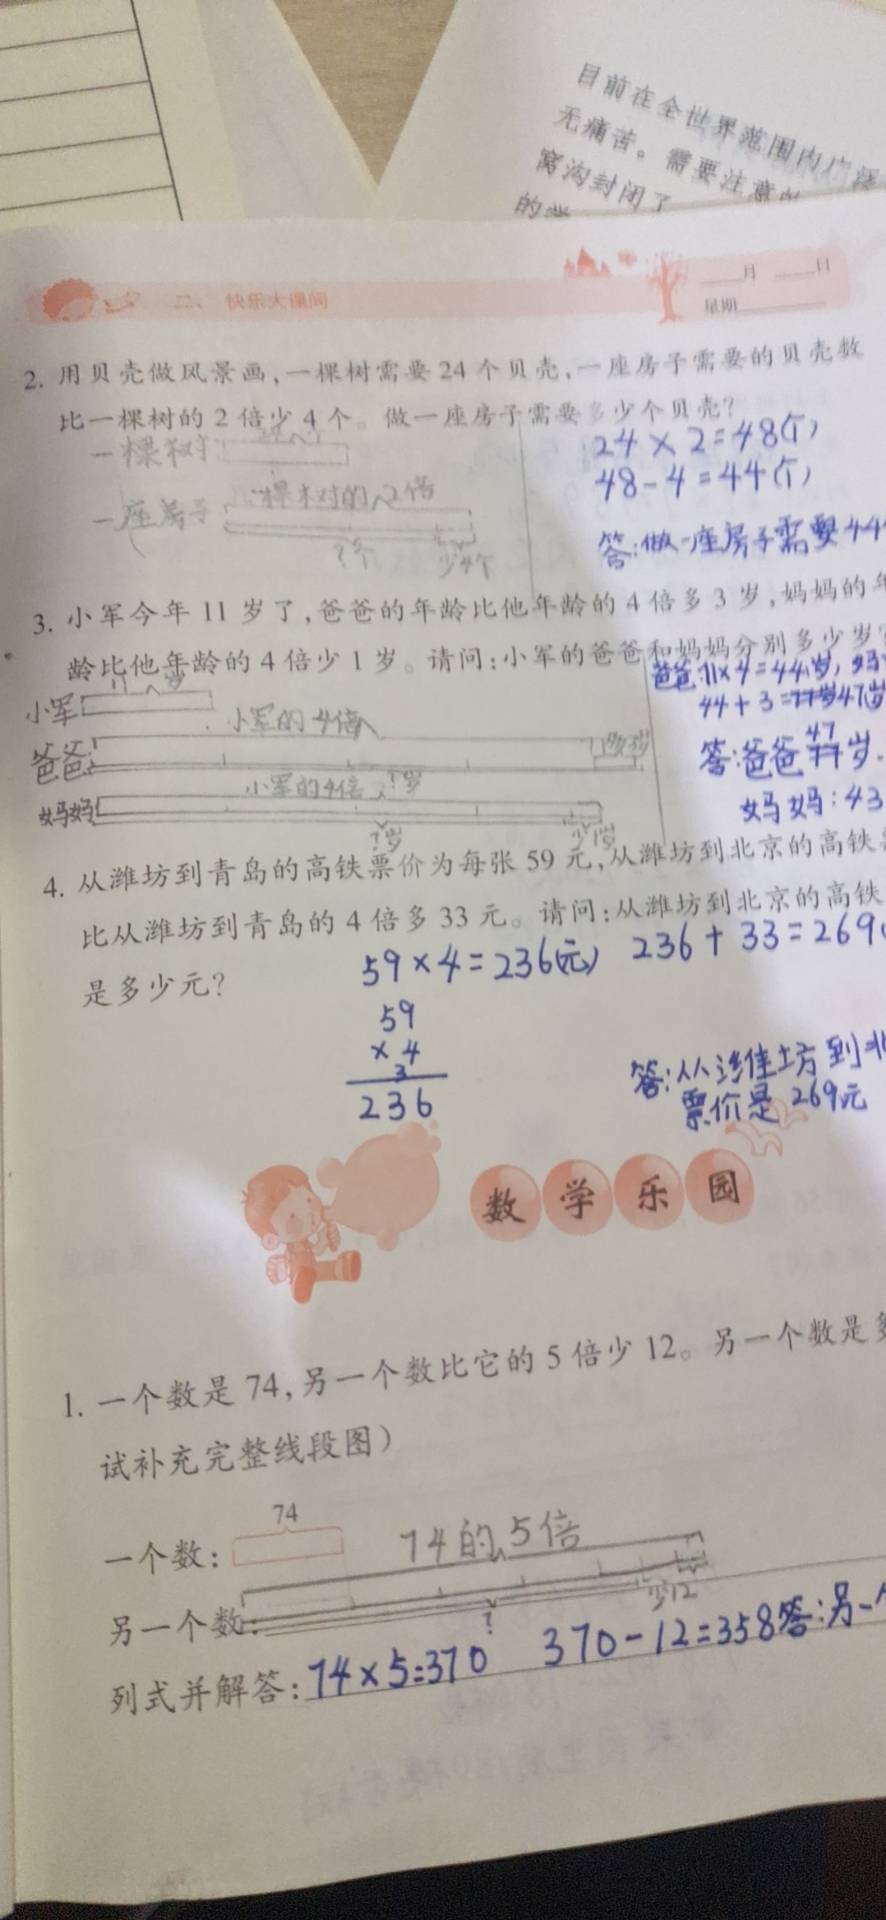 目前在全世界范围内广泛
无痛苦。需要注意
窝沟封闭了
的
二、快乐大课间
____月 ____日
星期________
2. 用贝壳做风景画，一棵树需要24个贝壳，一座房子需要的贝壳数
比一棵树的2倍少4个。做一座房子需要多少个贝壳？
24×2=48(个)
一棵树
48-4=44(个)
一座房子 一棵树的2倍
?个 少4个
答:做一座房子需要44
3. 小军今年11岁了，爸爸的年龄比他年龄的4倍多3岁，妈妈的年
龄比他年龄的4倍少1岁。请问：小军的爸爸和妈妈分别多少岁？
11岁
爸爸:11×4=44(岁)
小军
44+3=47(岁
小军的4倍
爸爸
答:爸爸47岁.
小军的4倍 ?岁
妈妈
妈妈:43
?岁 少1岁
4. 从潍坊到青岛的高铁票价为每张59元，从潍坊到北京的高铁
比从潍坊到青岛的4倍多33元。请问：从潍坊到北京的高铁
是多少元？
59×4=236(元) 236+33=269(
59
×4
3
236
答:从潍坊到北
票价是269元
数学乐园
1. 一个数是74，另一个数比它的5倍少12。另一个数是多
试补充完整线段图）
74
一个数： 74的5倍
另一个数： ? 少12
列式并解答：74×5=370 370-12=358 答:另一个